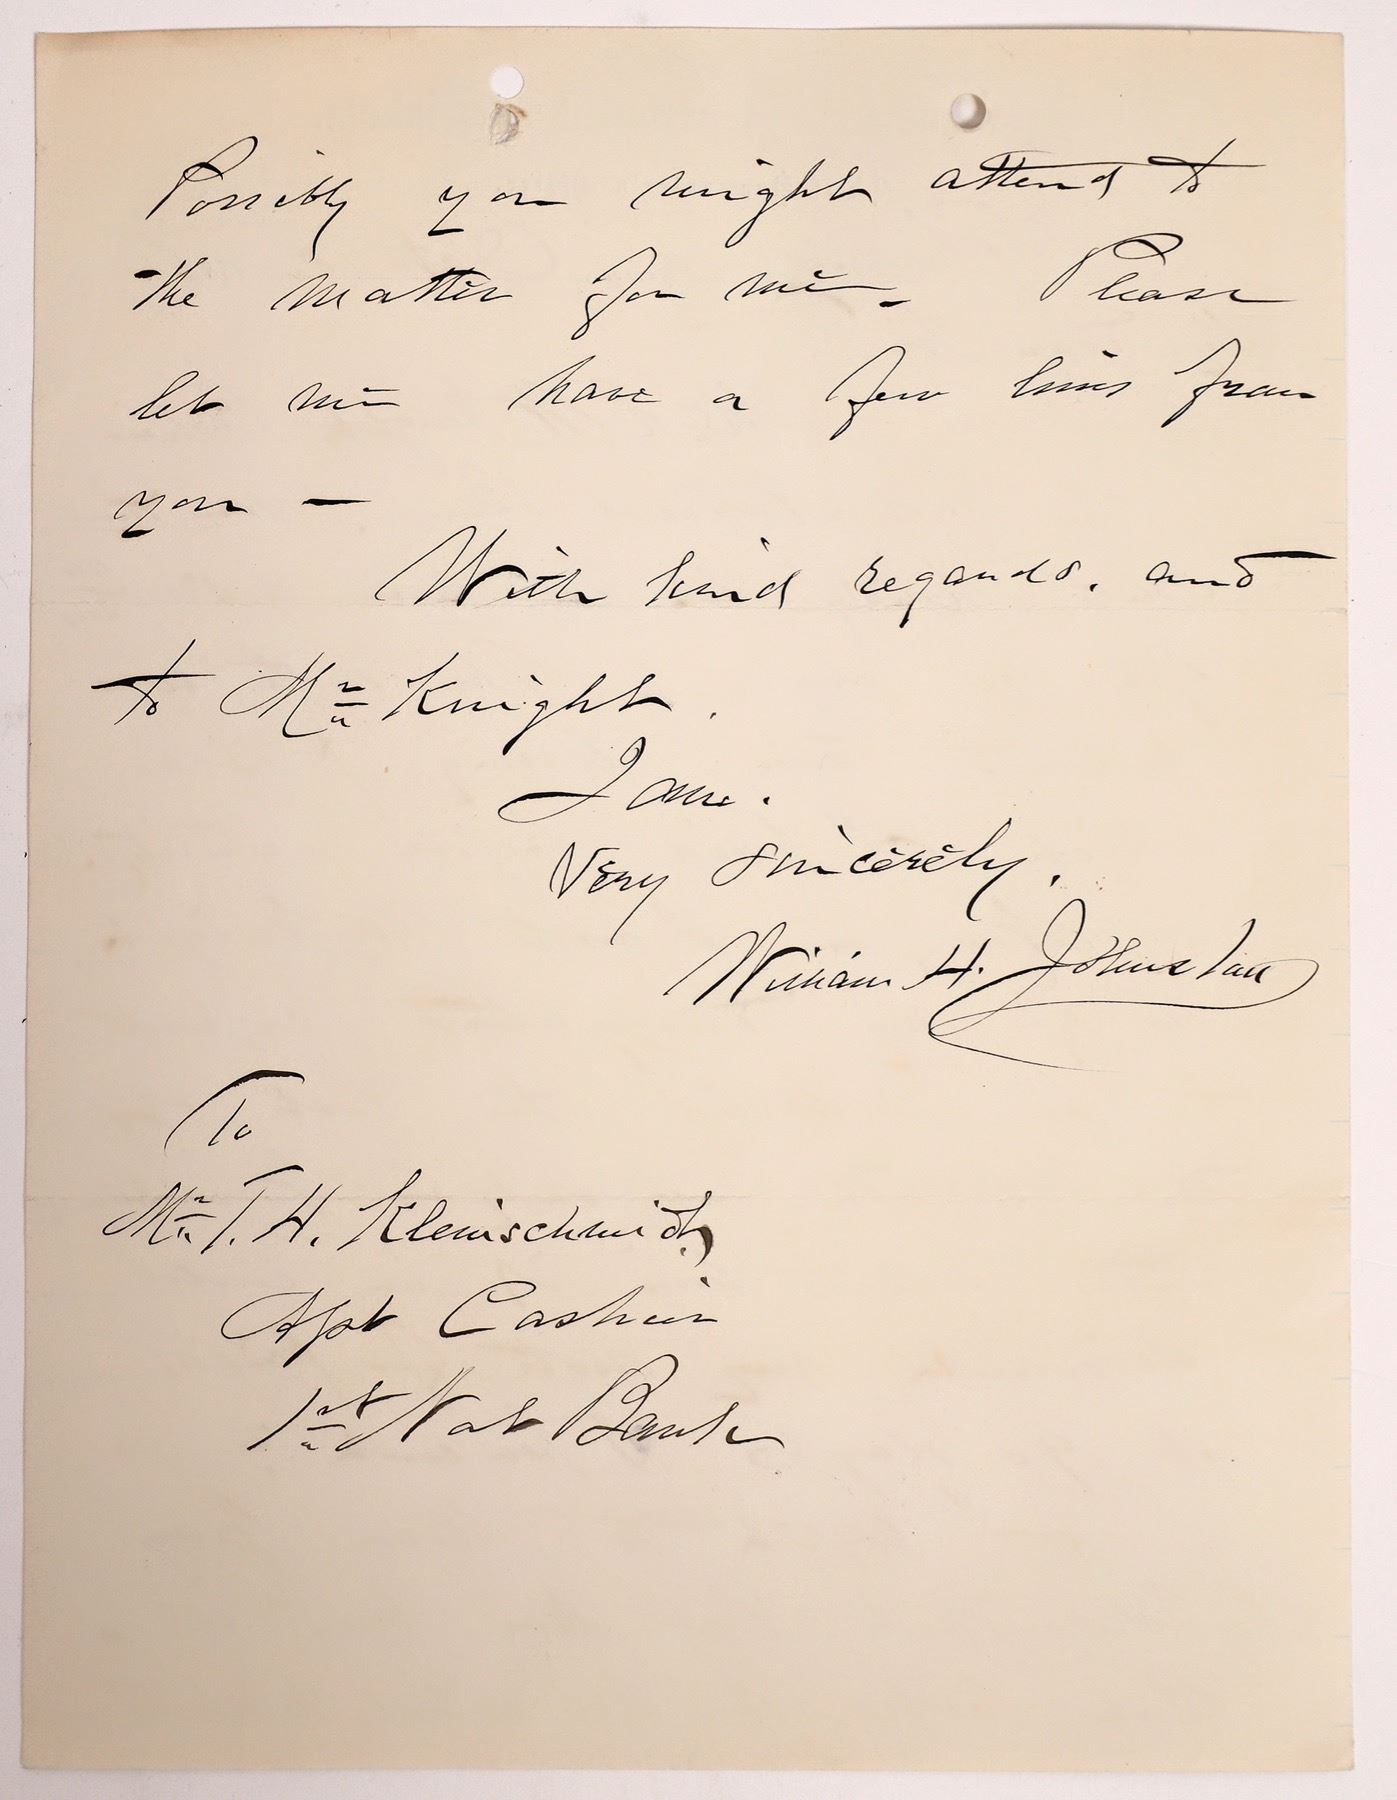 Possibly you might attend to
the matter for me. Please
let me have a few lines from
you —
With kind regards, and
to Mr Knight.
I am.
Very sincerely,
William H. Johnston
To
Mr T. H. Kleinschmidt,
Asst Cashier
1st Nat Bank